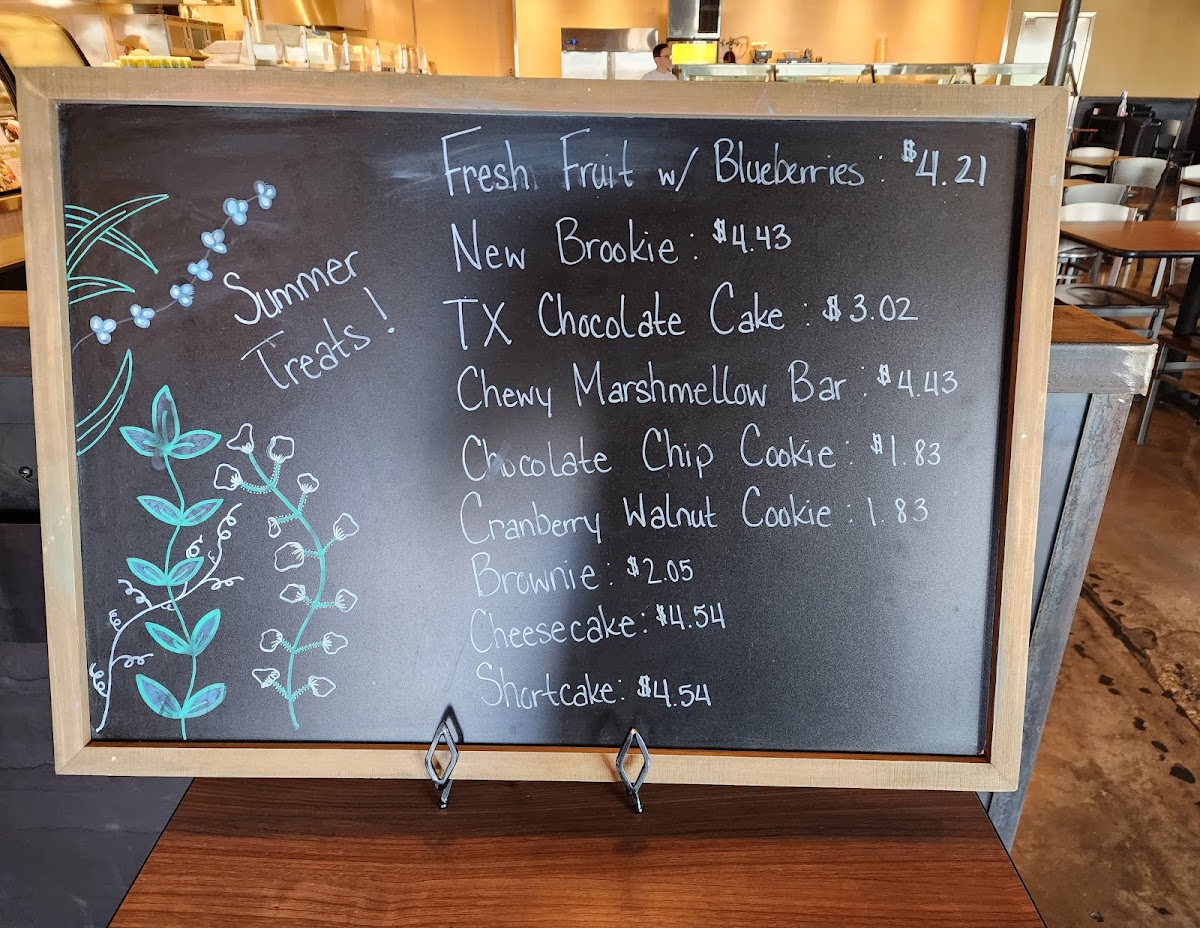 Summer
Treats!
Fresh Fruit w/ Blueberries : $4.21
New Brookie : $4.43
TX Chocolate Cake : $3.02
Chewy Marshmellow Bar : $4.43
Chocolate Chip Cookie : $1.83
Cranberry Walnut Cookie : 1.83
Brownie : $2.05
Cheesecake : $4.54
Shortcake : $4.54